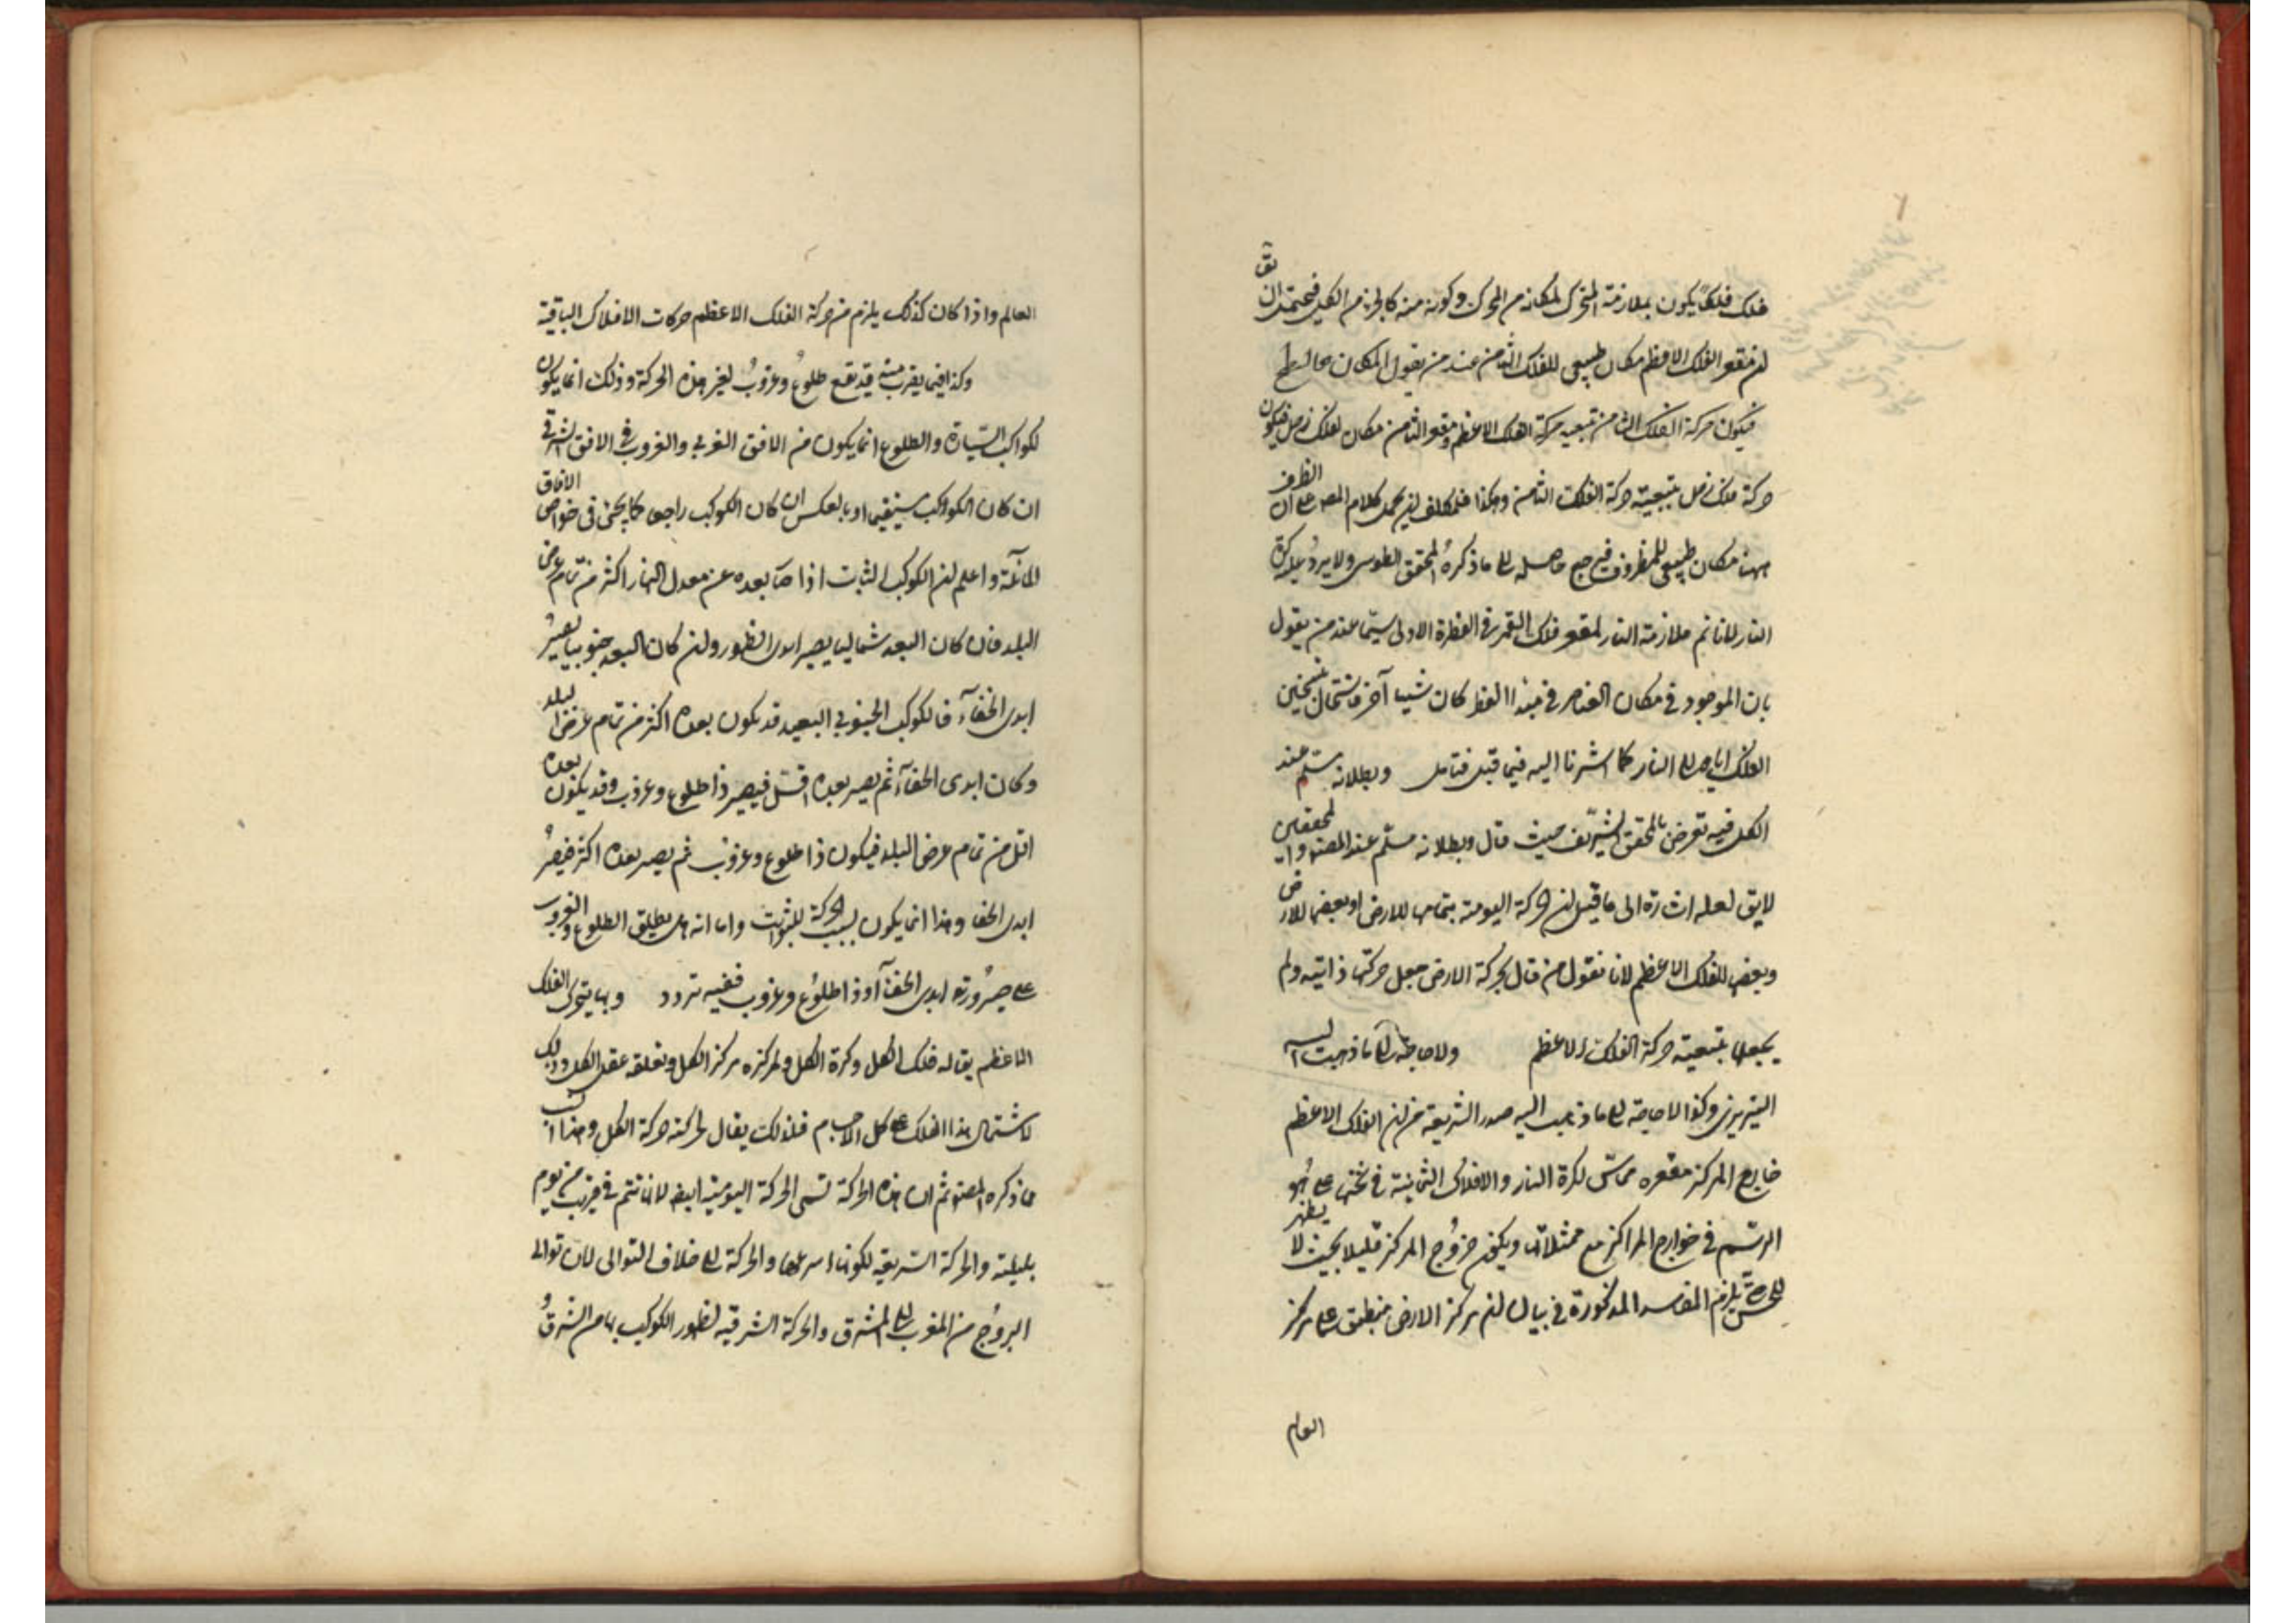 فلك فلكا يكون بملازمة المتحرك لمكانه من المحرك وكونه منه كالجزء من الكل فيحتمل ان يق
لان مقعر الفلك الاعظم مكان طبيعي للفلك الثامن عند من يقول المكان
فيكون حركة الفلك الثامن بتبعية حركة الفلك الاعظم ومقعر الثامن مكان لفلك زحل فيكون
حركة فلك زحل بتبعية حركة الفلك الثامن وهكذا كلام المص على ان الظرف
ههنا مكان طبيعي للمظروف فيرجع حاصله الى ما ذكره المحقق الطوسي ولا يرد عليه كرة
النار لانا نم ملازمة النار لمقعر فلك القمر في الفطرة الاولى سيما عند من يقول
بان الموجود في مكان العناصر في مبدا الفطر كان شيئا آخر فاستحال بتسخين
الفلك اياه الى النار كما اشرنا اليه فيما قبل فتامل وبطلانه مسلم عند
الكل فيه تعرض بالمحقق الشريف حيث قال وبطلانه مسلم عند المص والمحققين
لايق لعله اشارة الى ما قيل ان الحركة اليومية بتمامها للارض او بعضها للارض
وبعضها للفلك الاعظم لانا نقول من قال بحركة الارض جعل حركتها ذاتية ولم
يجعلها بتبعية حركة الفلك الاعظم ولا حاجة الى ما ذهبت اليه
التبريزي وكذا لا حاجة الى ما ذهب اليه صدر الشريعة من ان الفلك الاعظم
خارج المركز مقعره مماس لكرة النار والافلاك الثمانية في ثخنه على نحو
الرسم في خوارج المراكز مع ممثلاتها ويكون خروج المركز قليلا بحيث لا يظهر
للحس يلزم المفاسد المذكورة في بيان ان مركز الارض منطبق على مركز
العالم
العالم واذا كان كذلك يلزم من حركة الفلك الاعظم حركات الافلاك الباقية
وكذا فيما يقرب منه قد يقع طلوع وغروب لغير هذه الحركة وذلك انما يكون
لكواكب السيارة والطلوع انما يكون من الافق الغربي والغروب في الافق الشرقي
ان كان الكوكب مستقيما او بالعكس ان كان الكوكب راجعا كما يجئ في خواص الافاق
المائلة واعلم ان الكوكب الثابت اذا صار بعده عن معدل النهار اكثر من تمام عرض
البلد فان كان البعد شماليا يصير ابدي الظهور وان كان البعد جنوبيا يصير
ابدي الخفآء فالكوكب الجنوبي البعيد قد يكون بعده اكثر من تمام عرض البلد
وكان ابدي الخفآء ثم يصير بعده اقل فيصير ذا طلوع وغروب وقد يكون بعده
اقل من تمام عرض البلد فيكون ذا طلوع وغروب ثم يصير بعده اكثر فيصير
ابدي الخفا وهذا انما يكون بسبب الحركة للثوابت واما انه هل يطلق الطلوع والغروب
على صيرورته ابدي الخفآء او ذا طلوع وغروب ففيه تردد وبها يتحرك الفلك
الاعظم يقال له فلك الكل وكرة الكل ولمركزه مركز الكل ولعقله عقل الكل وذلك
لاشتمال هذا الفلك على كل الاجسام فلذلك يقال لحركته حركة الكل وهذا انسب
مما ذكره المص ثم ان هذه الحركة تسمى الحركة اليومية ايضا لانها تتم في قريب من يوم
بليلته والحركة السريعة لكونها اسرعها والحركة الى خلاف التوالي لان توالي
البروج من المغرب الى المشرق والحركة الشرقية لظهور الكوكب بها من الشرق